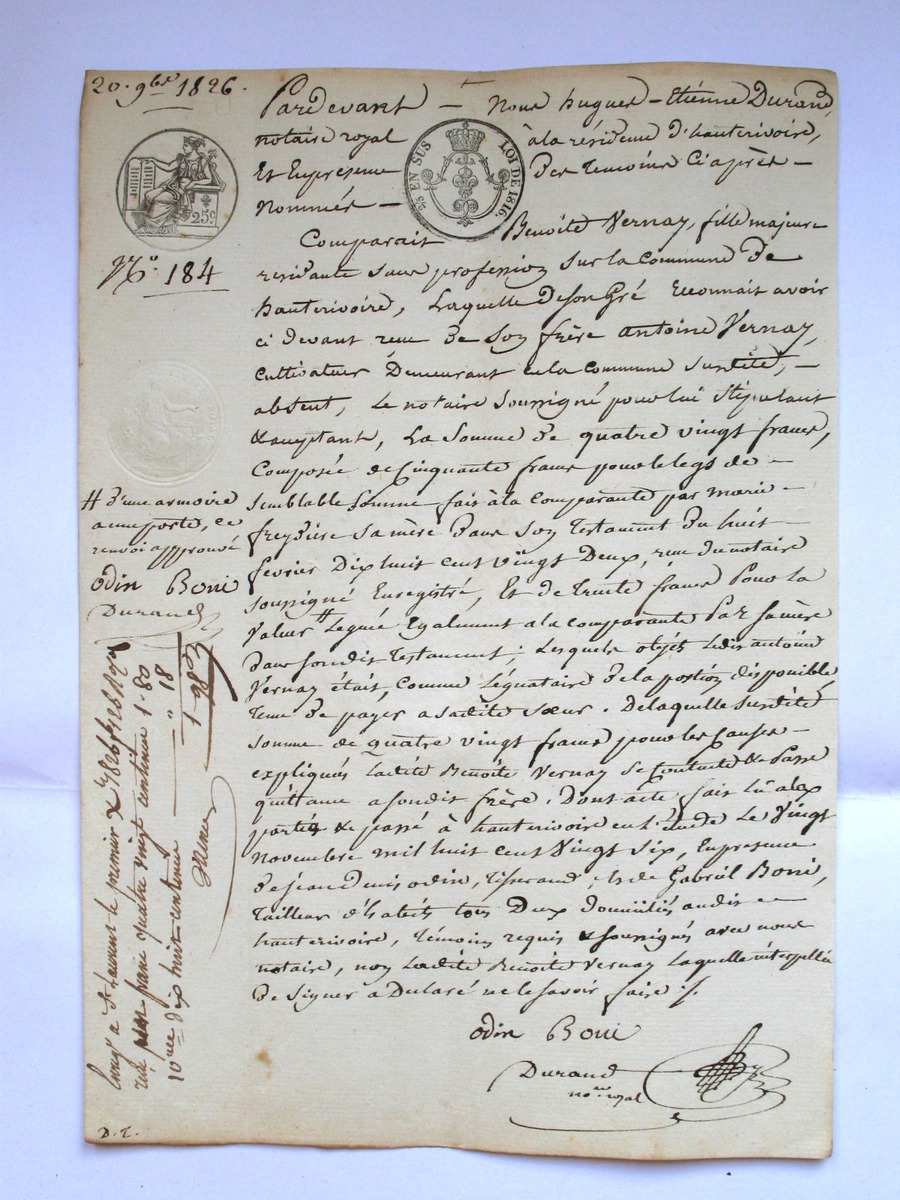 20. 9bre 1826.
Pardevant — Nous hugues-Etiénne Durand,
notaire royal à la résidence d'hauterivoire,
Et En présence Des temoins Ci après —
Nommés —
25 EN SUS LOI DE 1816.
25 c.
N.o 184
Comparait Benoite Vernay, fille majeure
residante sans profession sur la commune de
hauterivoire, Laquelle de son Gré reconnait avoir
ci devant reçu de Son frère antoine Vernay,
cultivateur Demeurant en la commune susdite, —
absent, Le notaire soussigné pour lui stipulant
& acceptant, La Somme de quatre vingt francs,
Composée de Cinquante francs pour le legs de —
Semblable Somme fait à la comparante par marie —
freydiere sa mère dans son Testament du huit —
février Dix huit cent vingt Deux, reçu du notaire
soussigné Enregistré, Et de Trente francs Pour la
Valeur # Leguée Egalement a la comparante Par sa mère
dans son dit Testament ; Lesquels objets ledit antoine
Vernay était, Comme Légataire de la portion disponible,
Tenu de payer a sadite sœur. De laquelle susdite
somme de quatre vingt francs pour les Causes —
expliquées Ladite Benoite Vernay se Contente & Passe
quittance a son dit frère. Dont acte fait lu alux
parties & passé à hauterivoire en l'Etude Le Vingt
Novembre mil huit cent Vingt Six, En présence
de jean Denis odin, Tisserand, & de Gabriël Boni,
Tailleur d'habits tous Deux domiciliés audit —
hauterivoire, témoins requis & soussignés avec nous
notaire, non Ladite Benoite Vernay Laquelle interpellée
de signer a Declaré ne le savoir faire ./.
odin Boni
Durand
no.re royal
# d'une armoire
a une porte, ce
renvoi approuvé
odin Boni
Durand
Enreg. a St Laurent le premier Xbre 1826
reçu un franc quatre vingt centimes 1 · 80
10me dix huit centimes " 18
1 98
D. T.